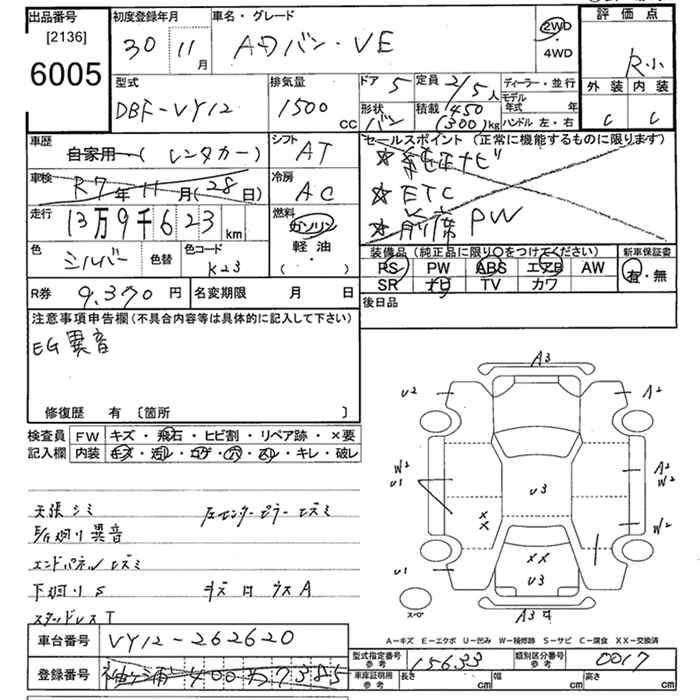 出品番号 初度登録年月 車名・グレード 評価点
[2136] 30年11月 ADバン・VE 2WD・4WD R小
6005
型式 排気量 ドア 5 定員 2/5人 ディーラー・並行 外装 内装
DBF-VY12 1500cc 形状 バン 積載 450(300)kg モデル年式 年 C C
ハンドル 左・右
車歴 シフト セールスポイント (正常に機能するものに限ります)
自家用 (レンタカー) AT ☆純正ナビ
車検 R7年11月(28日) 冷房 AC ☆ETC
走行 13万9千623km 燃料 ガソリン 軽油・( ) ☆前席PW
色 シルバー 色替 色コード K23
装備品 (純正品に限り○をつけてください) 新車保証書
PS PW ABS エアB AW 有・無
SR ナビ TV カワ
R券 9,370円 名変期限 月 日 後日品
注意事項申告欄(不具合内容等は具体的に記入して下さい)
EG異音
修復歴 有 [箇所 ]
検査員 FW キズ・飛石・ヒビ割・リペア跡・×要
記入欄 内装 キズ・汚レ・コゲ・穴・スレ・キレ・破レ
天張シミ 左センターピラーヒズミ
F/G廻り異音
エンドパネルヒズミ
下廻りS キズ ウスA
スタッドレスT
A3
U2 A2
W2 U1 U3 A2 W2
XX W2
U1 XX U3
スペア A3
A-キズ E-エクボ U-凹み W-補修跡 S-サビ C-腐食 XX-交換済
車台番号 VY12-262620 型式指定番号 参考 15633 類別区分番号 参考 0017
登録番号 袖ヶ浦400わ7385 車庫証明用 参考 長さ cm 幅 cm 高さ cm